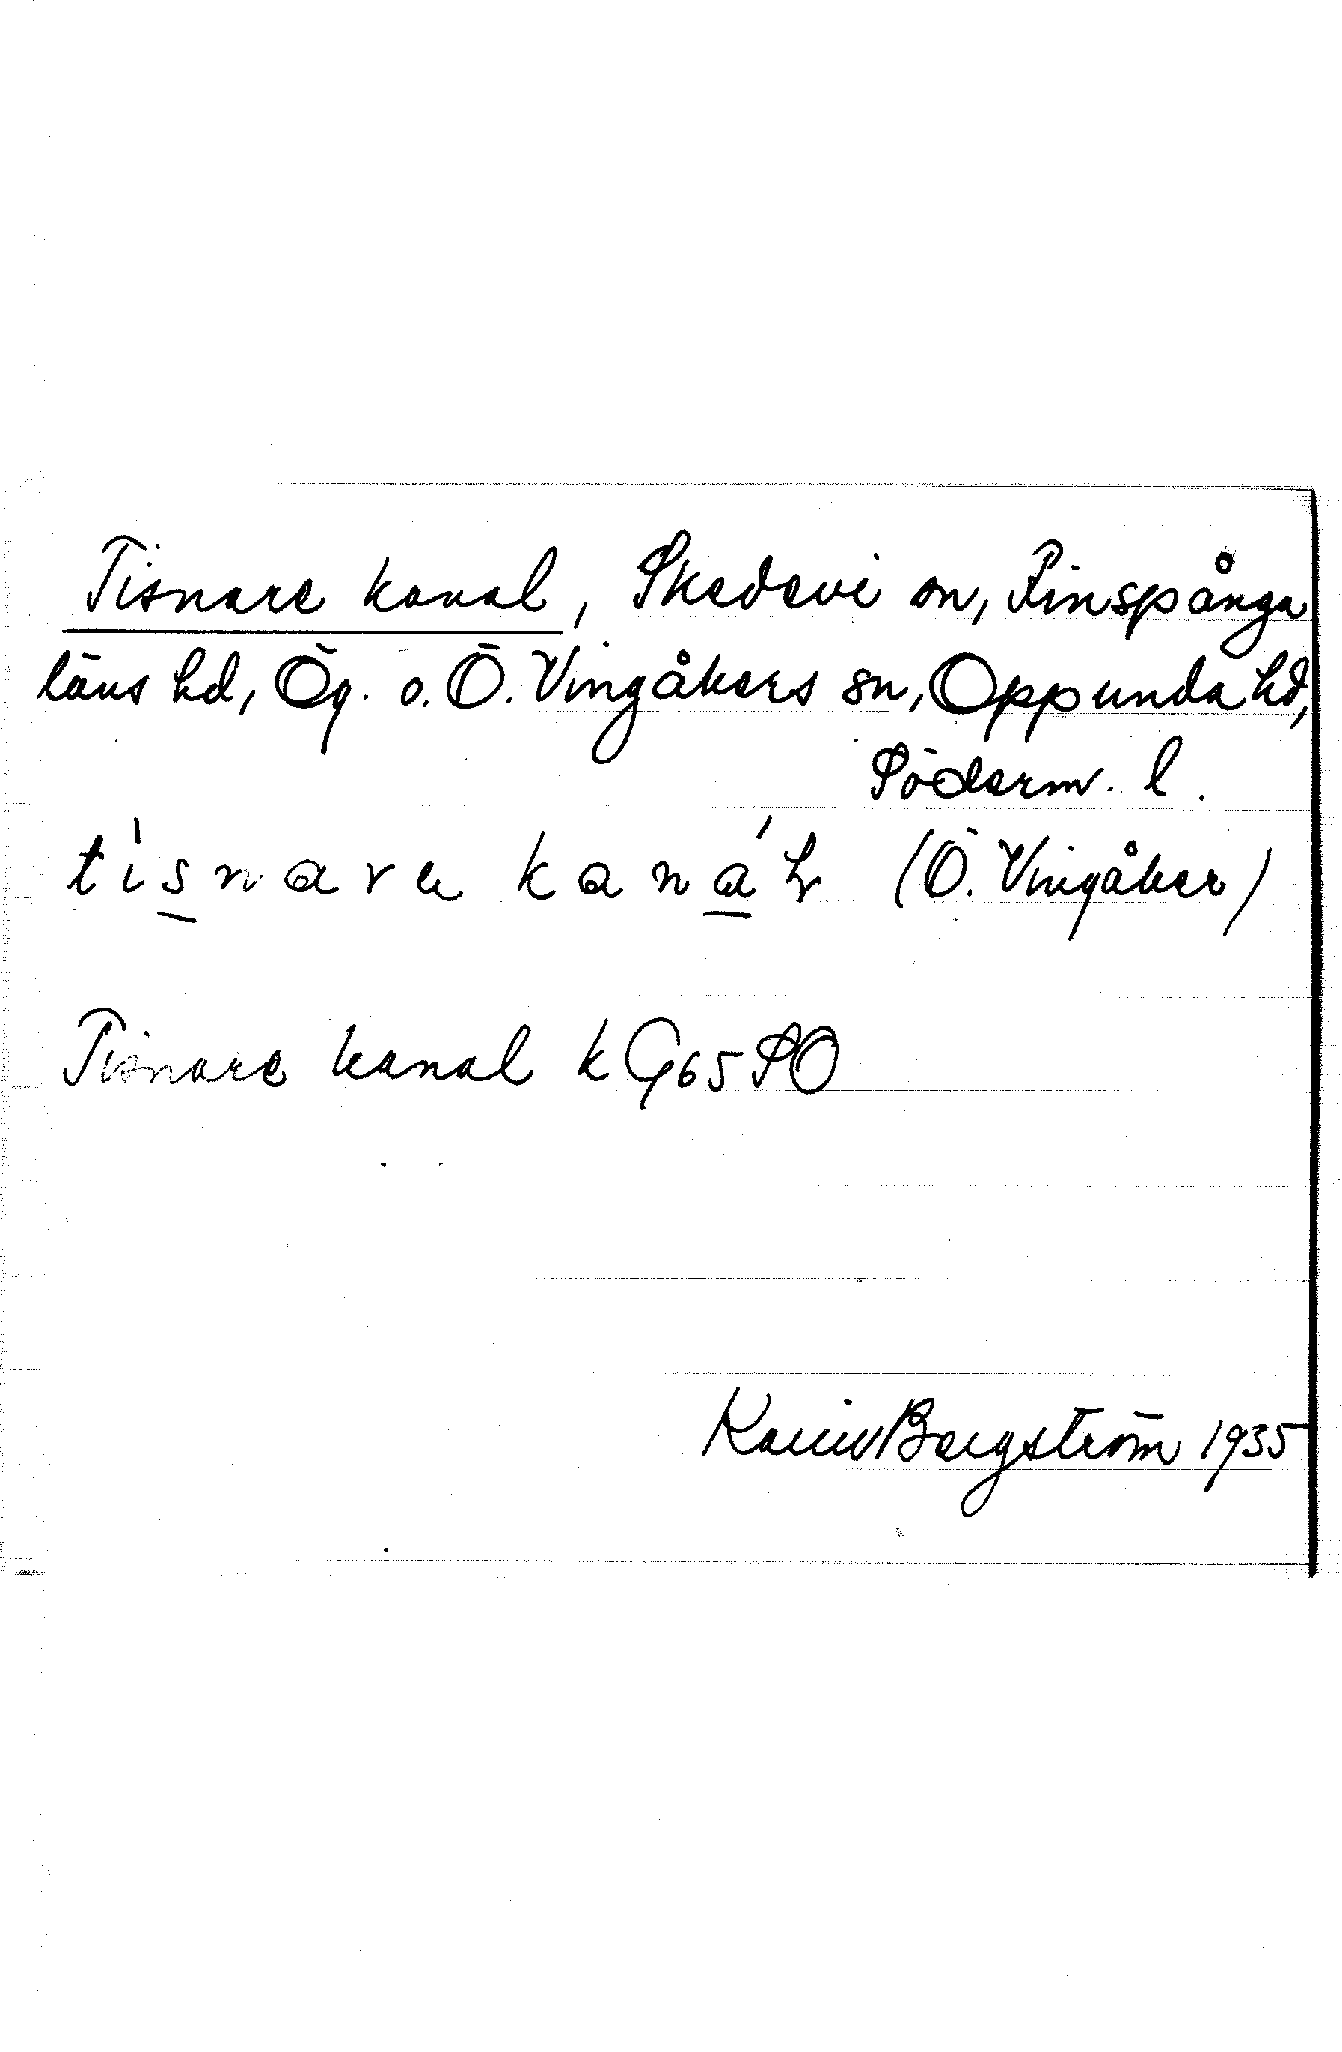 Tisnare kanal, Skedevi sn, Finspånga
läns hd, Ög. o. Ö. Vingåkers sn, Oppunda hd,
Söderm. l.
tìsnara kanáɬ (Ö. Vingåker)
Tisnare kanal k G65SO
Karin Bergström 1935